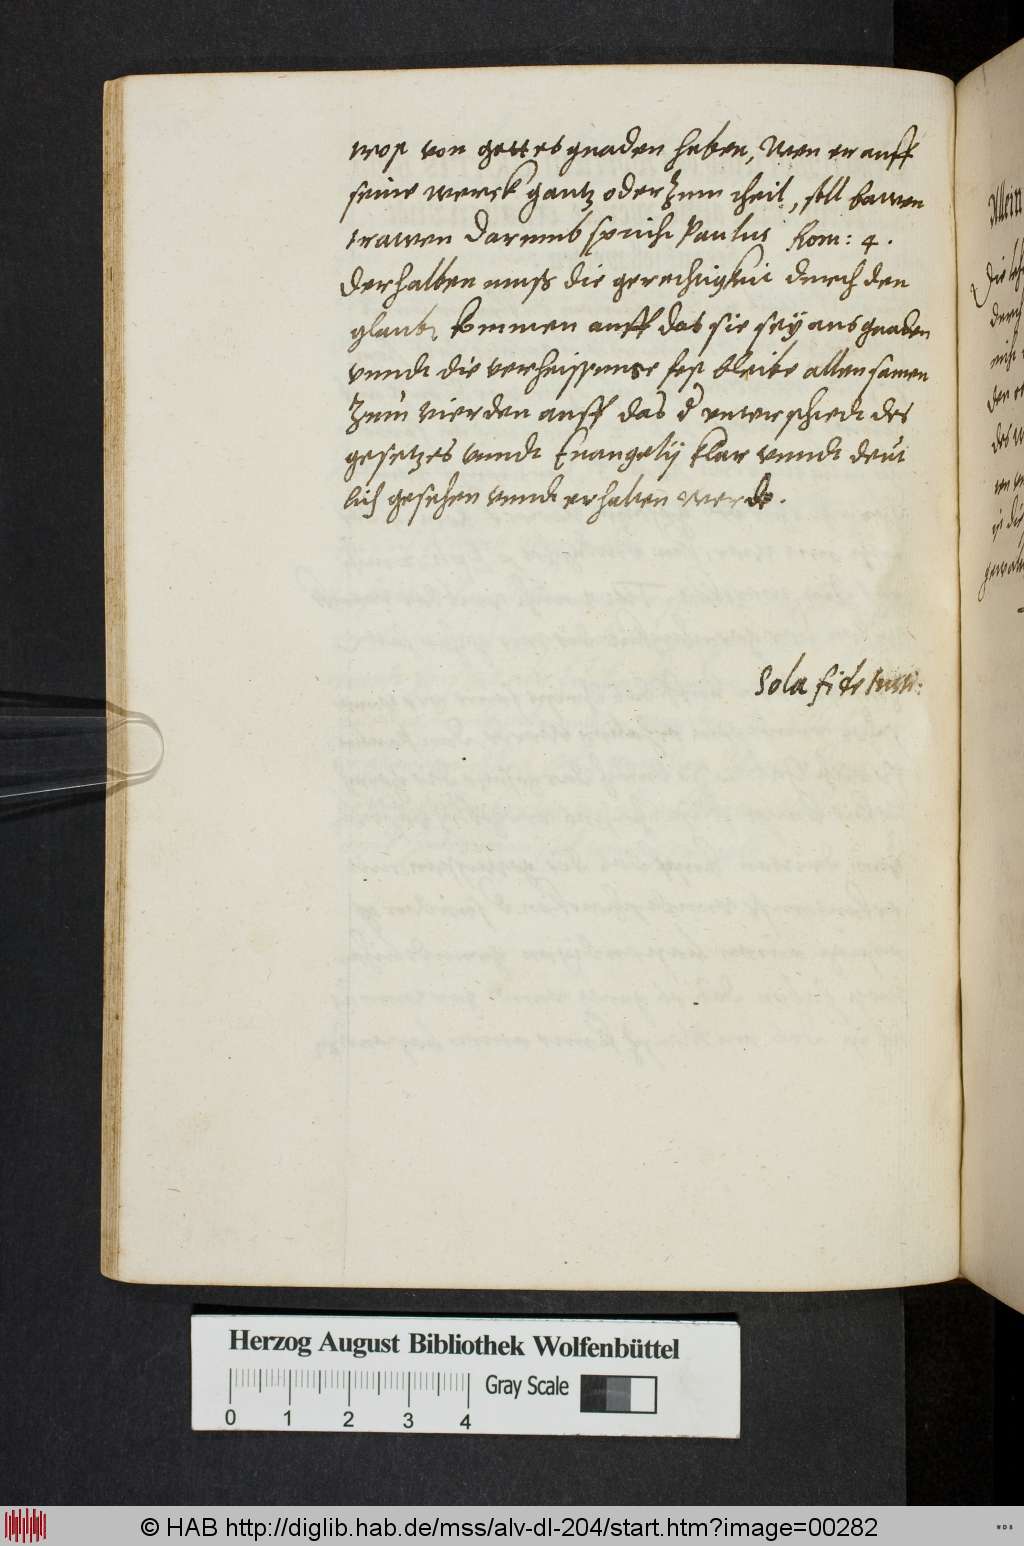 trost von gottes gnaden haben, Wen er auff
seine werck gantz oder zum theil, soll bawen
trawen darumb spricht Paulus Rom: 4.
derhalben muß die gerechtigkeit durch den
glaub kommen auff das sie sey aus gnaden
vnndt die verheissunge fest bleibe allen samen
Zum Vierden auff das d unterschiedt des
gesetzes vnndt Euangelij klar vnndt deut
lich gesehen vnndt erhalten werde.
Sola fide
Allein
Herzog August Bibliothek Wolfenbüttel
0 1 2 3 4
Gray Scale
© HAB http://diglib.hab.de/mss/alv-dl-204/start.htm?image=00282